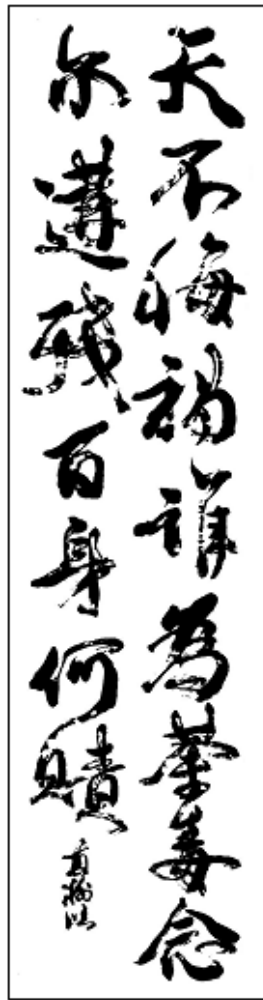 天不悔禍誰為荼毒念
尔遘残百身何贖